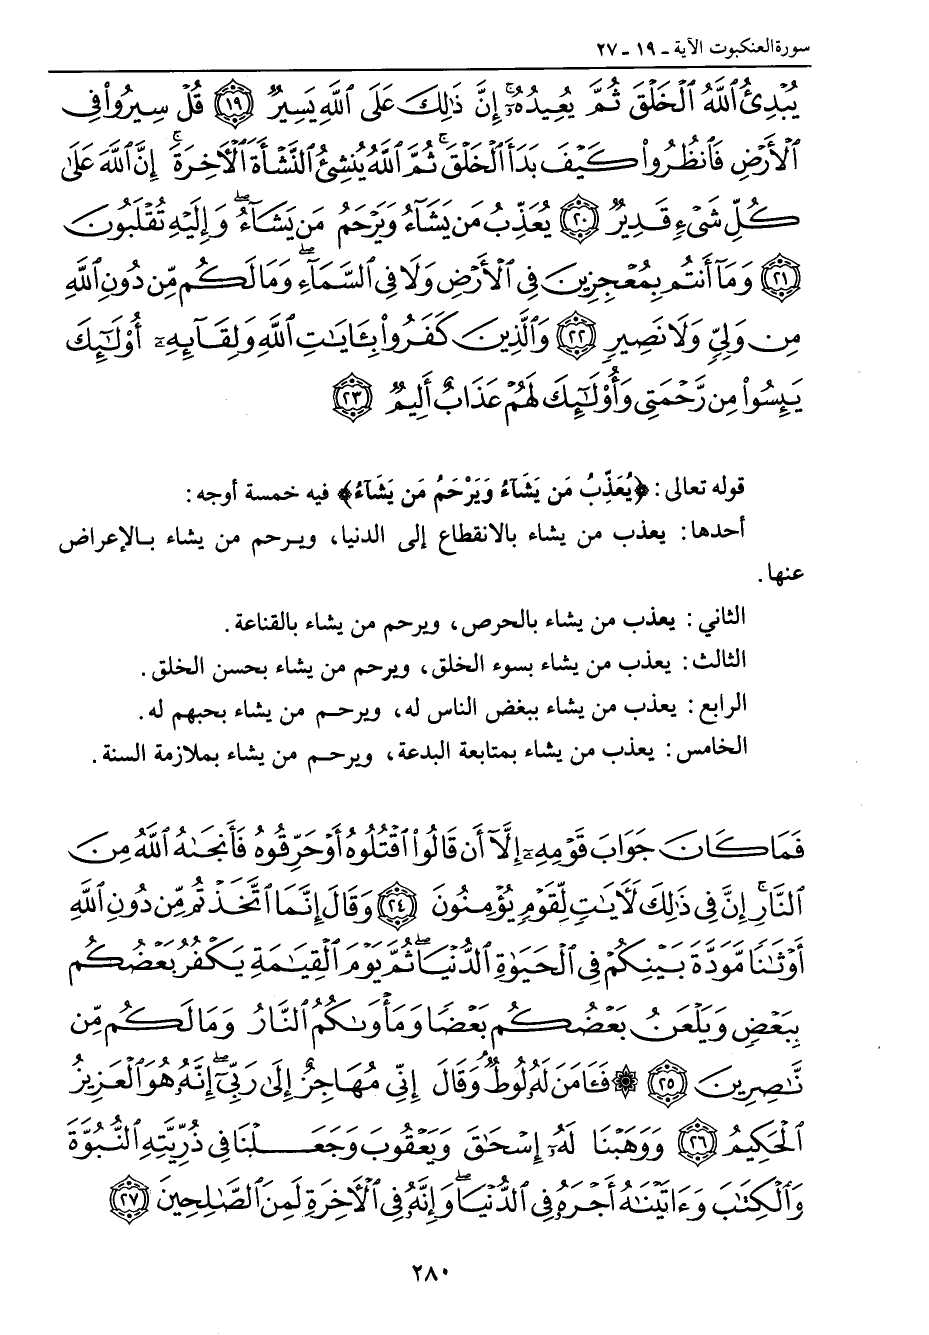 سورة العنكبوت الآية ـ ١٩ ـ ٢٧
يُبْدِئُ ٱللَّهُ ٱلْخَلْقَ ثُمَّ يُعِيدُهُۥٓ ۚ إِنَّ ذَٰلِكَ عَلَى ٱللَّهِ يَسِيرٌ ﴿١٩﴾ قُلْ سِيرُوا۟ فِى
ٱلْأَرْضِ فَٱنظُرُوا۟ كَيْفَ بَدَأَ ٱلْخَلْقَ ۚ ثُمَّ ٱللَّهُ يُنشِئُ ٱلنَّشْأَةَ ٱلْـَٔاخِرَةَ ۚ إِنَّ ٱللَّهَ عَلَىٰ
كُلِّ شَىْءٍ قَدِيرٌ ﴿٢٠﴾ يُعَذِّبُ مَن يَشَآءُ وَيَرْحَمُ مَن يَشَآءُ ۖ وَإِلَيْهِ تُقْلَبُونَ
﴿٢١﴾ وَمَآ أَنتُم بِمُعْجِزِينَ فِى ٱلْأَرْضِ وَلَا فِى ٱلسَّمَآءِ ۖ وَمَا لَكُم مِّن دُونِ ٱللَّهِ
مِن وَلِىٍّ وَلَا نَصِيرٍ ﴿٢٢﴾ وَٱلَّذِينَ كَفَرُوا۟ بِـَٔايَٰتِ ٱللَّهِ وَلِقَآئِهِۦٓ أُو۟لَٰٓئِكَ
يَئِسُوا۟ مِن رَّحْمَتِى وَأُو۟لَٰٓئِكَ لَهُمْ عَذَابٌ أَلِيمٌ ﴿٢٣﴾
قوله تعالى: ﴿يُعَذِّبُ مَن يَشَآءُ وَيَرْحَمُ مَن يَشَآءُ﴾ فيه خمسة أوجه:
أحدها: يعذب من يشاء بالانقطاع إلى الدنيا، ويرحم من يشاء بالإعراض
عنها.
الثاني: يعذب من يشاء بالحرص، ويرحم من يشاء بالقناعة.
الثالث: يعذب من يشاء بسوء الخلق، ويرحم من يشاء بحسن الخلق.
الرابع: يعذب من يشاء ببغض الناس له، ويرحم من يشاء بحبهم له.
الخامس: يعذب من يشاء بمتابعة البدعة، ويرحم من يشاء بملازمة السنة.
فَمَا كَانَ جَوَابَ قَوْمِهِۦٓ إِلَّآ أَن قَالُوا۟ ٱقْتُلُوهُ أَوْ حَرِّقُوهُ فَأَنجَىٰهُ ٱللَّهُ مِنَ
ٱلنَّارِ ۚ إِنَّ فِى ذَٰلِكَ لَـَٔايَٰتٍ لِّقَوْمٍ يُؤْمِنُونَ ﴿٢٤﴾ وَقَالَ إِنَّمَا ٱتَّخَذْتُم مِّن دُونِ ٱللَّهِ
أَوْثَٰنًا مَّوَدَّةَ بَيْنِكُمْ فِى ٱلْحَيَوٰةِ ٱلدُّنْيَا ۖ ثُمَّ يَوْمَ ٱلْقِيَٰمَةِ يَكْفُرُ بَعْضُكُم
بِبَعْضٍ وَيَلْعَنُ بَعْضُكُم بَعْضًا وَمَأْوَىٰكُمُ ٱلنَّارُ وَمَا لَكُم مِّن
نَّٰصِرِينَ ﴿٢٥﴾ ۞ فَـَٔامَنَ لَهُۥ لُوطٌ ۘ وَقَالَ إِنِّى مُهَاجِرٌ إِلَىٰ رَبِّىٓ ۖ إِنَّهُۥ هُوَ ٱلْعَزِيزُ
ٱلْحَكِيمُ ﴿٢٦﴾ وَوَهَبْنَا لَهُۥٓ إِسْحَٰقَ وَيَعْقُوبَ وَجَعَلْنَا فِى ذُرِّيَّتِهِ ٱلنُّبُوَّةَ
وَٱلْكِتَٰبَ وَءَاتَيْنَٰهُ أَجْرَهُۥ فِى ٱلدُّنْيَا ۖ وَإِنَّهُۥ فِى ٱلْـَٔاخِرَةِ لَمِنَ ٱلصَّٰلِحِينَ ﴿٢٧﴾
٢٨٠